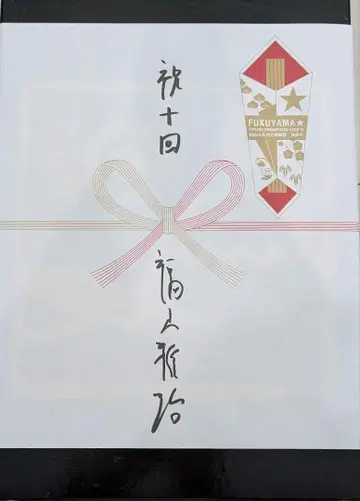 祝十回
FUKUYAMA★
福山雅治